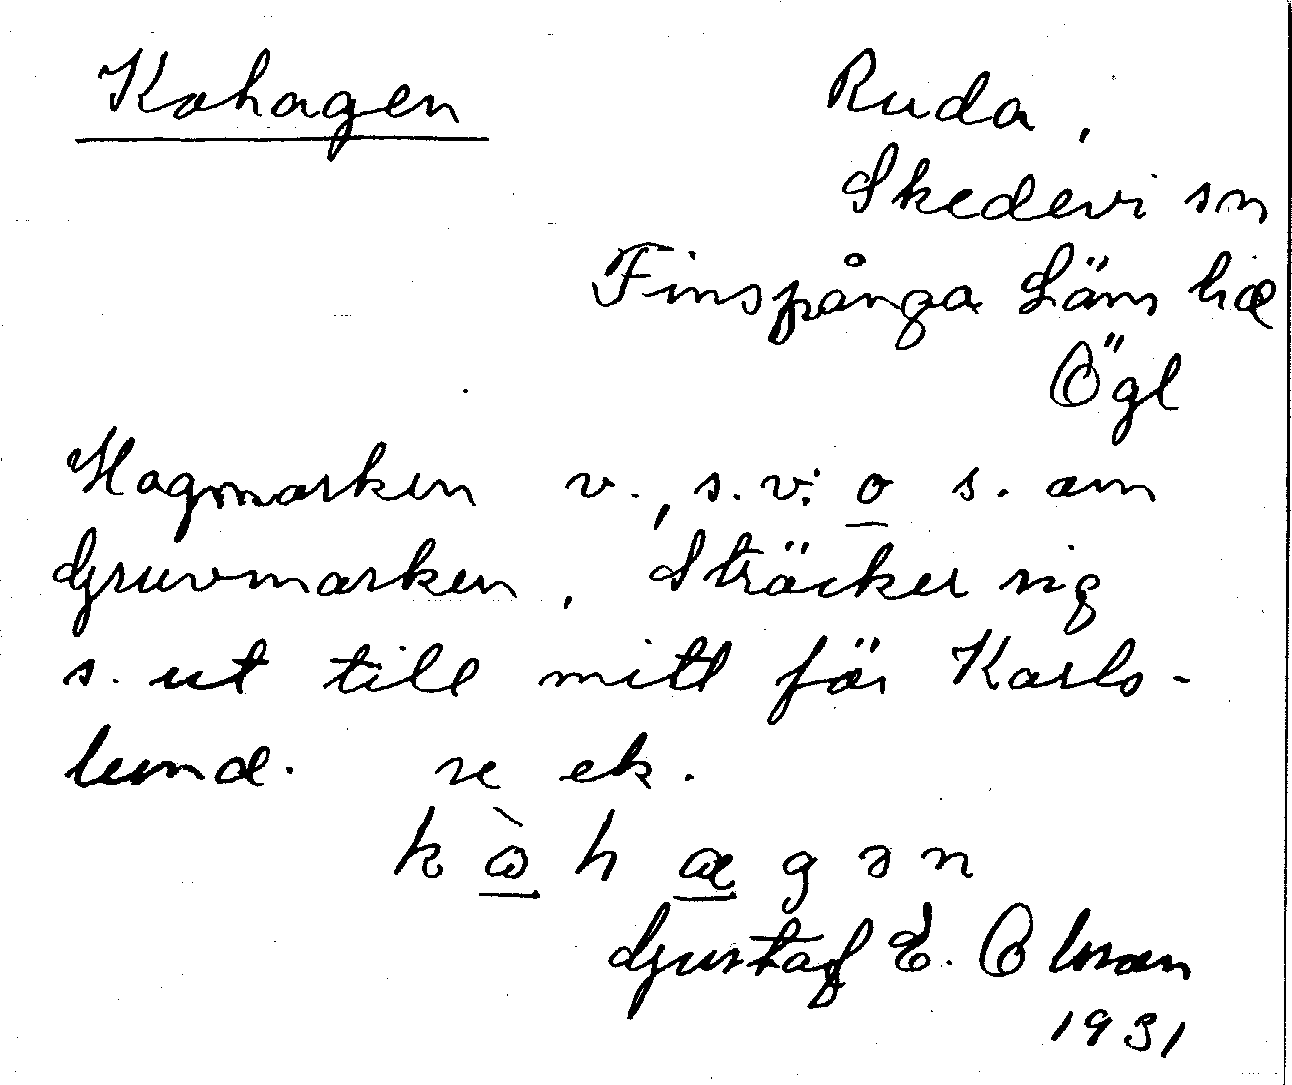 Kohagen
Ruda,
Skedevi sn
Finspånga Läns hd
Ögl
Hagmarken v., s.v. o s. om
Gruvmarken. Sträcker sig
s. ut till mitt för Karls-
lund. se ek.
Gustaf E. Olsson
1931